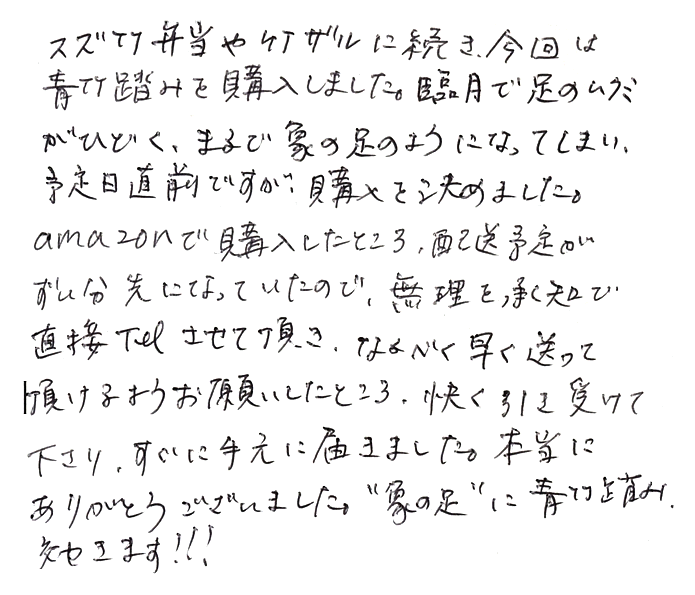 スズ竹弁当や竹ザルに続き、今回は
青竹踏みを購入しました。臨月で足のムクミ
がひどく、まるで象の足のようになってしまい、
予定日直前ですが、購入を決めました。
amazonで購入したところ、配送予定が
ずい分先になっていたので、無理を承知で
直接Telさせて頂き、なるべく早く送って
頂けるようお願いしたところ、快く引き受けて
下さり、すぐに手元に届きました。本当に
ありがとうございました。“象の足”に青竹踏み、
効きます!!!